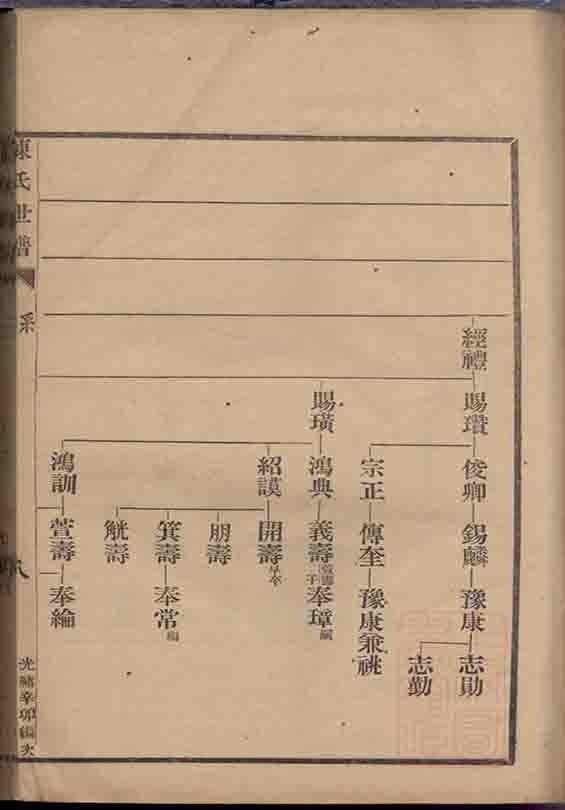 經禮
賜瓚
俊卿
錫麟
豫康
志勛
志勤
宗正
傳奎
豫康兼祧
賜璜
鴻典
義壽
奉璋嗣
紹謨
開壽早卒
朋壽
箕壽
奉常
觥壽
鴻訓
萱壽
奉綸
陳氏世譜
系
光緒辛卯編次